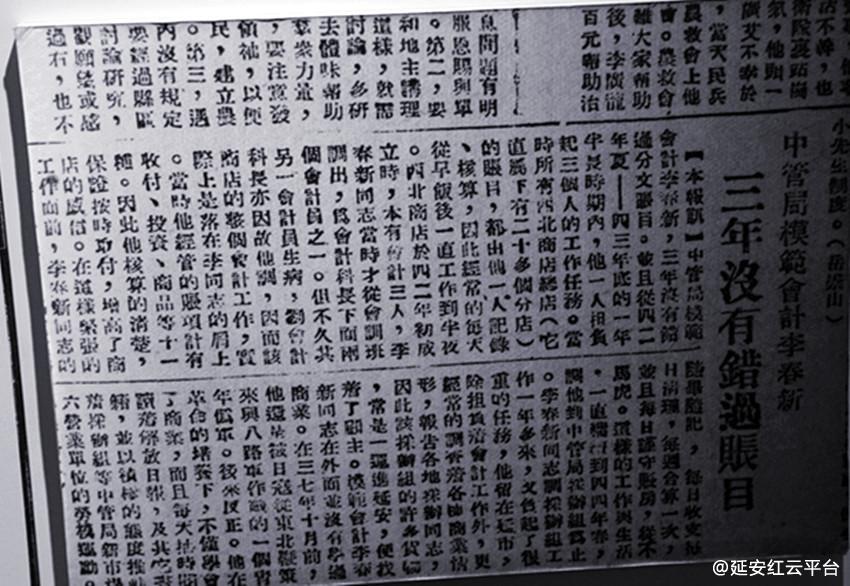 話不通,也
氣,他頭一
,當天民兵
農救會上他
會。農救會
難大家幫助
後,李廣龍
百元幫助治
息問題有明
服恩賜與單
。第二,要
和地主講理
這樣,就需
討論,多研
去體味幫助
羣衆力量,
,要注意發
領袖,以便
民,建立農
。第三,遇
內沒有規定
要經過縣區
討論研究,
觀願望或感
過右,也不
小先生制度。(岳崇山)
中管局模範會計李春新
三年沒有錯過賬目
【本報訊】中管局模範
會計李春新,三年沒有錯
過分文賬目。並且從四二
年夏——四三年底的一年
半長時期內,他一人担負
起三個人的工作任務。當
時所有西北商店總店(它
直屬下有二十多個分店)
的賬目,都由他一人記錄
、核算,因此經常的每天
從早飯後一直工作到半夜
。西北商店於四二年初成
立時,本有會計三人,李
春新同志當時才從會訓班
調出,爲會計科長下面兩
個會計員之一。但不久其
另一會計員生病,劉會計
科長亦因故他調,因而該
商店的整個會計工作,實
際上是落在李同志的肩上
。當時他經管的賬項計有
收付、投資、商品等十一
種。因此他核算的清楚,
保證按時取付,增高了商
店的威信。在這樣緊張的
工作面前,李春新同志的
隨畢隨記,每日收支每
日清理,每週合算一次,
並且每日謹守賬房,從不
馬虎。這樣的工作與生活
,一直繼續到四四年春,
調他到中管局採辦組爲止
。李春新同志調採辦組工
作一年多來,又負起了很
重的任務,他留在延市,
除担負着會計工作外,更
經常的調查着各種商業情
形,報告各地採辦同志,
因此該採辦組的許多貨物
,常是一運進延安,便找
着了顧主。模範會計李春
新同志在外面並沒有學過
商業。在三七年十月前,
他還是被日寇從東北策
來與八路軍作戰的一個青
年僞軍。後來反正。他在
革命的培養下,不僅學會
了商業,而且每天抽時間
讀着解放日報,及其它書
籍,並以積極的態度推動
着採辦組等中管局新市場
六營業單位的勞模運動。
@延安红云平台